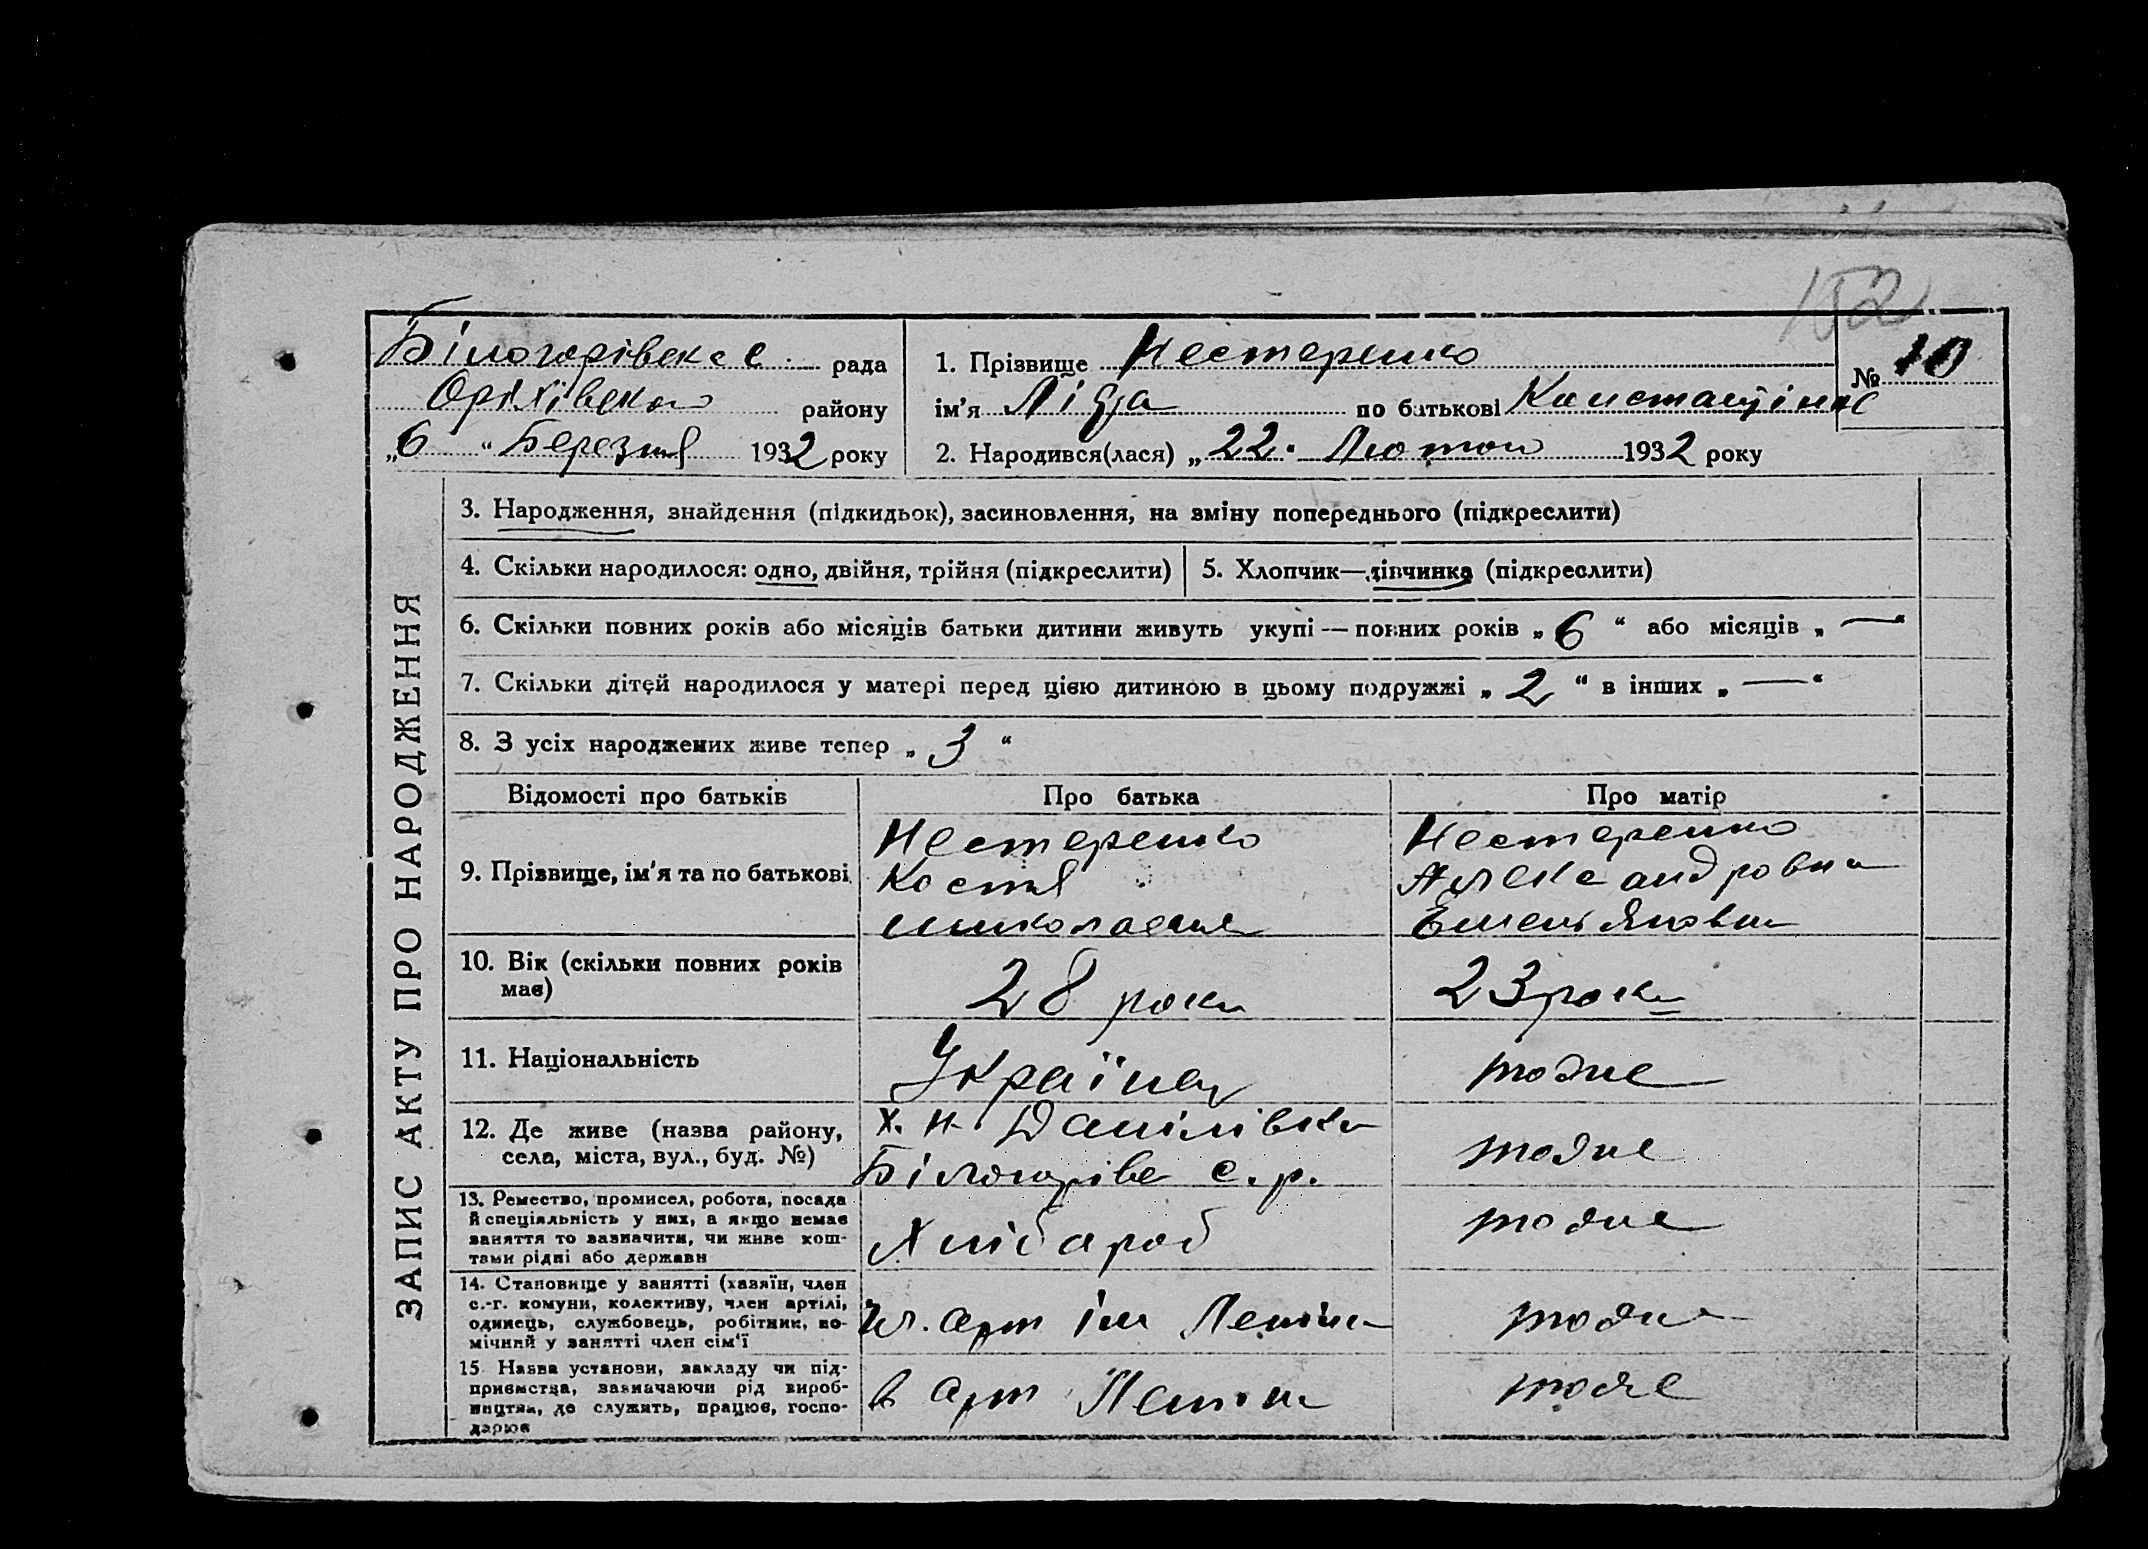 152
Білогорівска с. рада
Оріхівского району
„6“ Березня 1932 року
1. Прізвище Нестеренко
№ 10
ім'я Лідa по батькові Констанціна
2. Народився(лася) „22. Лютого 1932 року
ЗАПИС АКТУ ПРО НАРОДЖЕННЯ
3. Народження, знайдення (підкидьок), засиновлення, на зміну попереднього (підкреслити)
4. Скільки народилося: одно, двійня, трійня (підкреслити)
5. Хлопчик—дівчинка (підкреслити)
6. Скільки повних років або місяців батьки дитини живуть укупі — повних років „6“ або місяців „—“
7. Скільки дітей народилося у матері перед цією дитиною в цьому подружжі „2“ в інших „—“
8. З усіх народжених живе тепер „3“
Відомості про батьків Про батька Про матір
9. Прізвище, ім'я та по батькові
Нестеренко
Костя
Нестеренко
Александровна
Емельяновна
10. Вік (скільки повних років
має)
28 роки
23 роки
11. Національність
Українец
тодне
12. Де живе (назва району,
села, міста, вул., буд. №)
х. н- Данілівка
Білогоріве с.р.
тодне
13. Ремество, промисел, робота, посада
й спеціяльність у них, а якщо немає
заняття то зазначити, чи живе кош-
тами рідні або держави
Хлібароб
тодне
14. Становище у занятті (хазяїн, член
с.-г. комуни, колективу, член артілі,
одинець, службовець, робітник, по-
мічний у занятті член сім'ї
чл. арт ім Леніна
тодне
15 Назва установи, закладу чи під-
приємства, зазначаючи рід вироб-
ництва, де служить, працює, госпо-
дарює
в арт Леніна
тодне